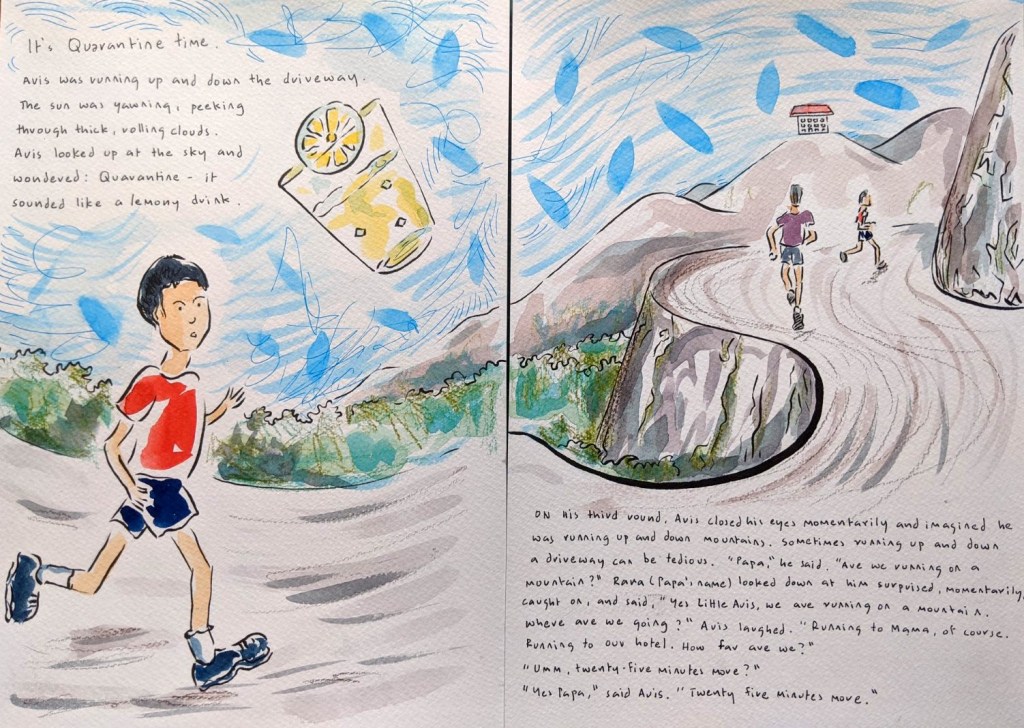 It's Quarantine time.
Avis was running up and down the driveway.
The sun was yawning, peeking
through thick, rolling clouds.
Avis looked up at the sky and
wondered: Quarantine - it
sounded like a lemony drink.
On his third round, Avis closed his eyes momentarily and imagined he
was running up and down mountains. Sometimes running up and down
a driveway can be tedious. "Papa," he said. "Are we running on a
mountain?" Rana (Papa's name) looked down at him surprised, momentarily,
caught on, and said, "Yes Little Avis, we are running on a mountain.
Where are we going?" Avis laughed. "Running to Mama, of course.
Running to our hotel. How far are we?"
"Umm, twenty-five minutes more?"
"Yes Papa," said Avis. "Twenty five minutes more."